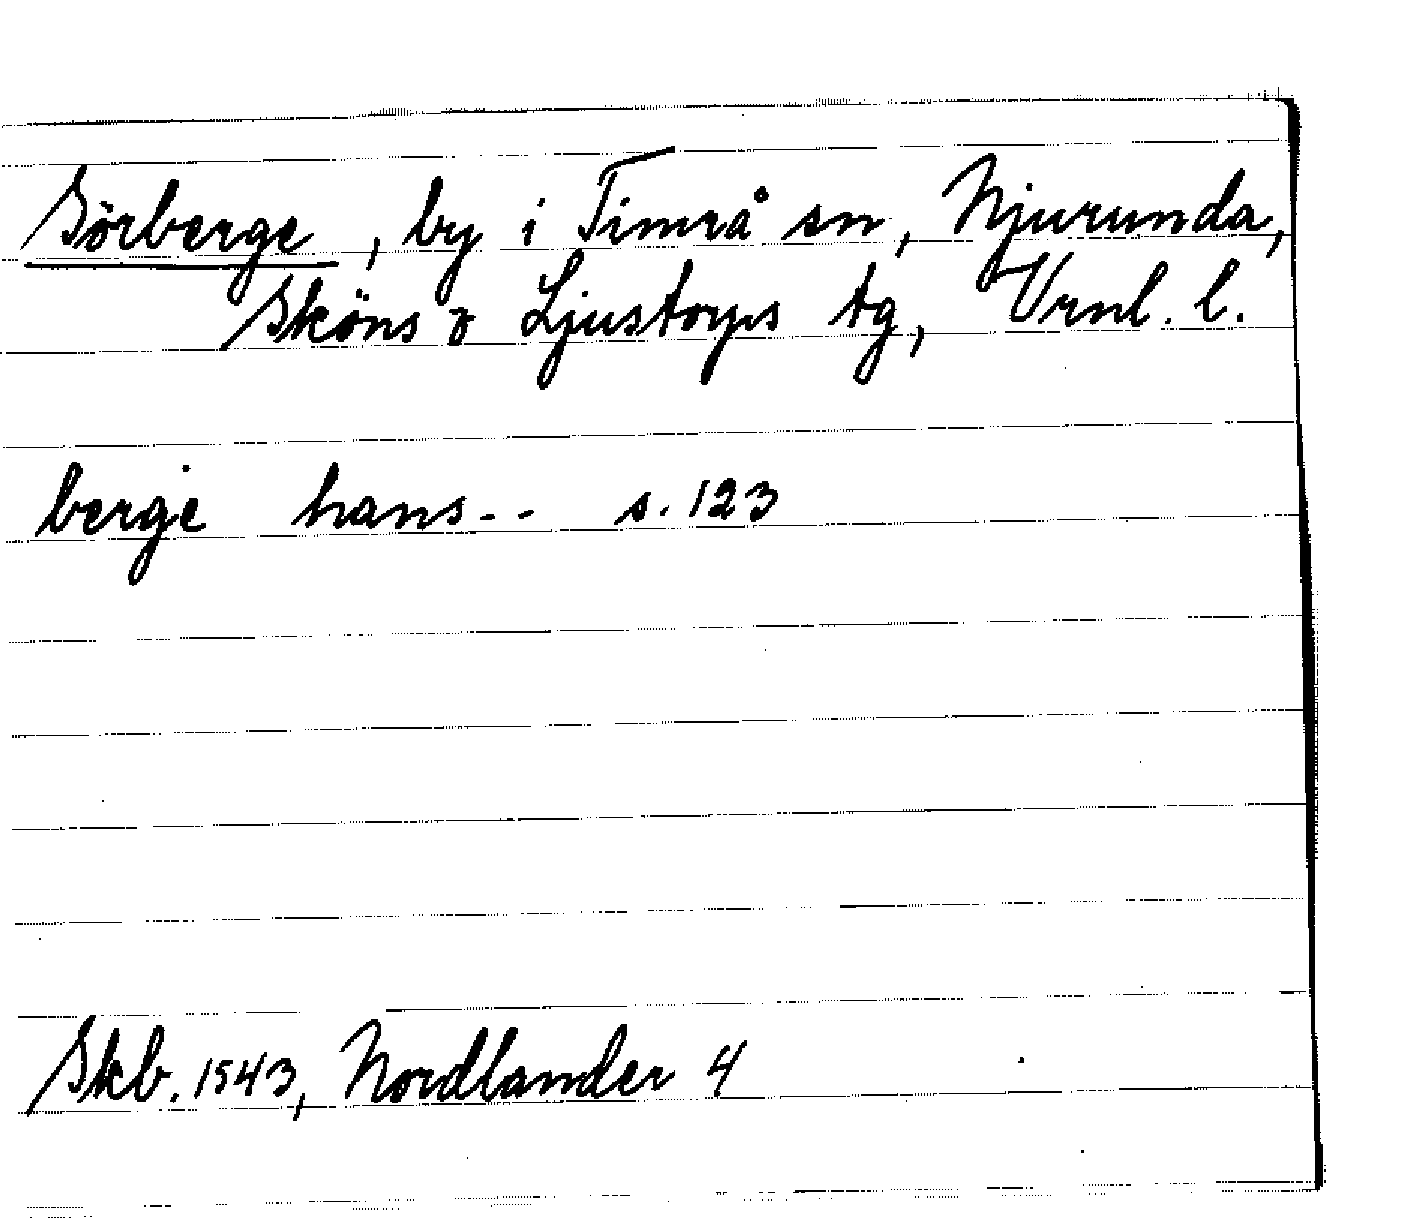 Sörberge, by i Timrå sn, Njurunda,
Sköns o Ljustorps tg, Vrnl. l.
berge hans-- s. 123
Skb. 1543, Nordlander 4